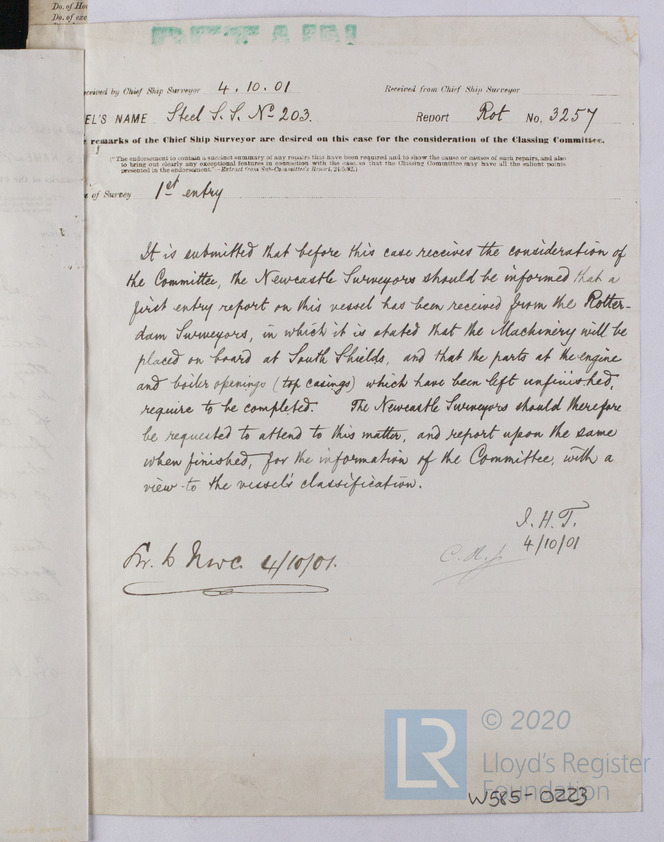 Do. of
Do. of
eceived by Chief Ship Surveyor 4.10.01 Received from Chief Ship Surveyor
EL'S NAME Steel S.S. No 203. Report Rot No. 3257
remarks of the Chief Ship Surveyor are desired on this case for the consideration of the Classing Committee.
("The endorsement to contain a succinct summary of any repairs that have been required and to show the cause or causes of such repairs, and also
to bring out clearly any exceptional features in connection with the case, so that the Classing Committee may have all the salient points
presented in the endorsement."—Extract from Sub-Committee's Report, 24/5/92.)
of Survey 1st entry
It is submitted that before this case receives the consideration of
the Committee, the Newcastle Surveyors should be informed that a
first entry report on this vessel has been received from the Rotter-
dam Surveyors, in which it is stated that the Machinery will be
placed on board at South Shields, and that the parts at the engine
and boiler openings (top casings) which have been left unfinished,
require to be completed. The Newcastle Surveyors should therefore
be requested to attend to this matter, and report upon the same
when finished, for the information of the Committee, with a
view to the vessel's classification.
J.H.T.
4/10/01
Nwc. 4/10/01.
LR
© 2020
Lloyd's Register
Foundation
W585-0223